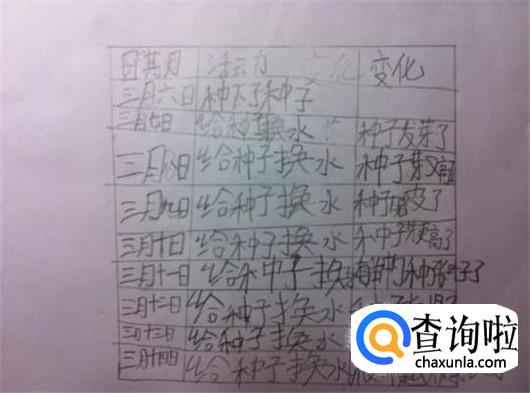 日其月 活云力 变化 变化
三月六日 种下了种子
三月七日 给种子换水 种子发芽了
三月八日 给种子换水 种子芽又高
三月九日 给种子换水 种子脱皮了
三月十日 给种子换水 种子高了
三月十一日 给种子换 种子了
三月十二日 给种子换水
三月十三日 给种子换水
三月十四日 给种子换水
查询啦
chaxunla.com